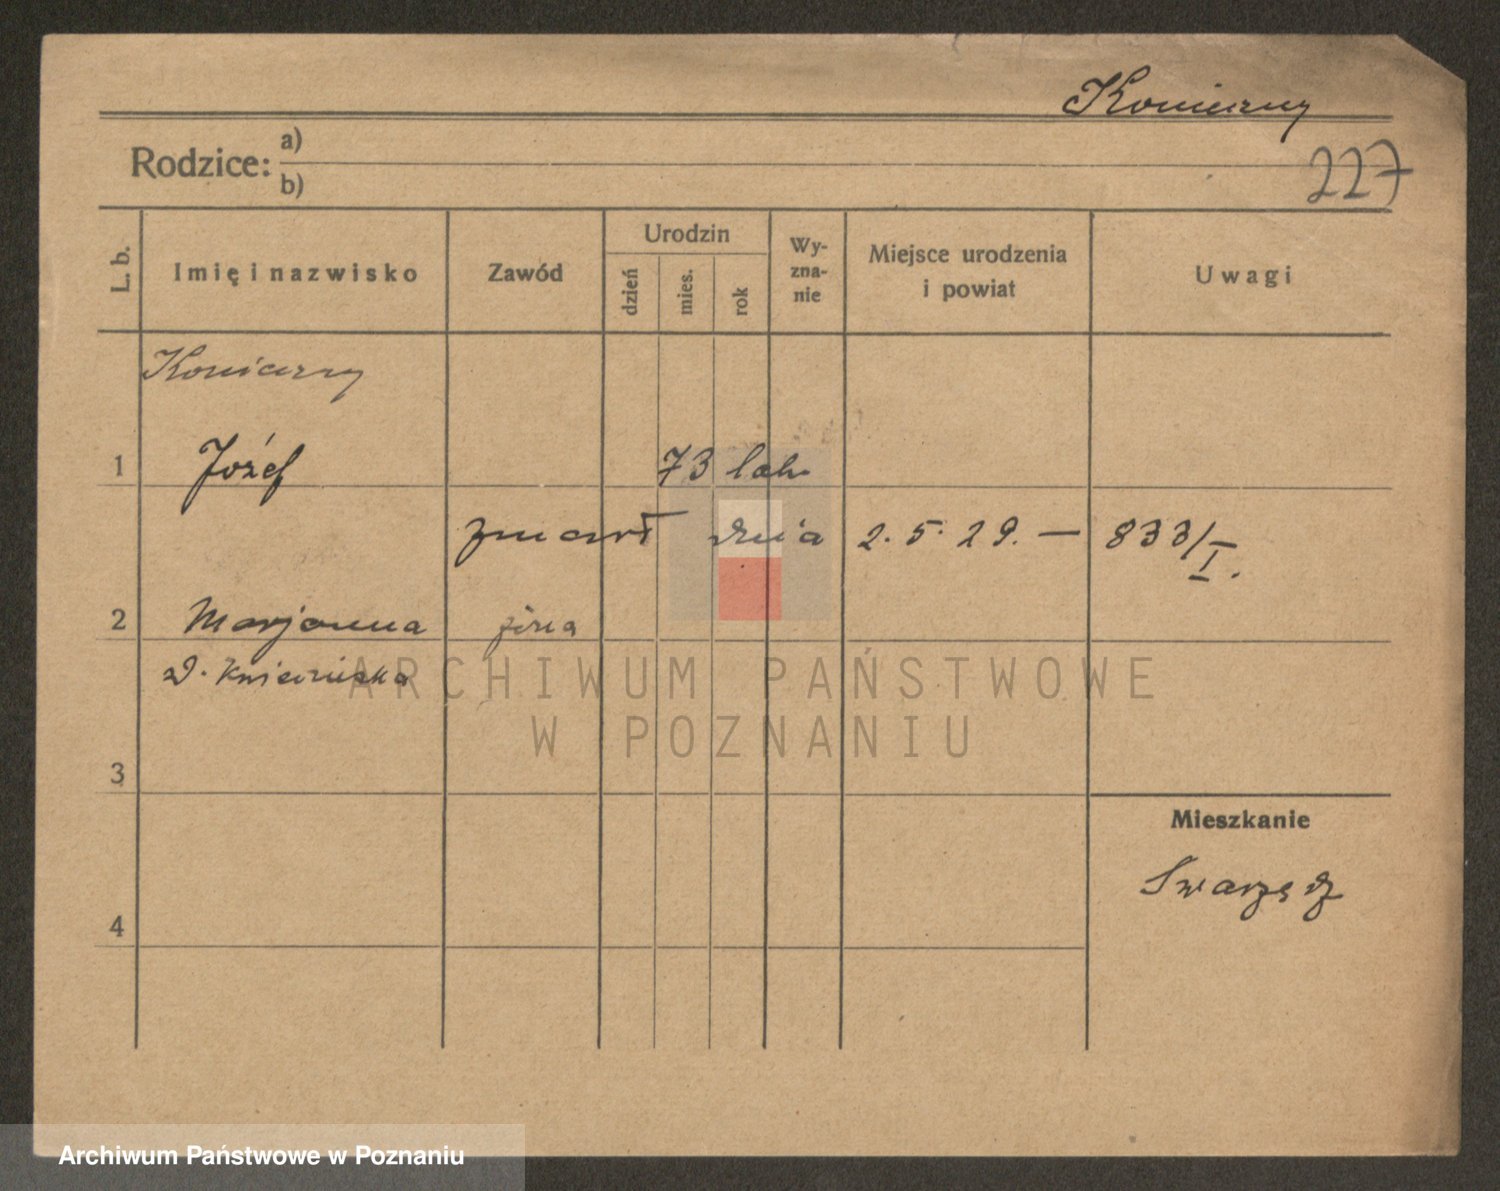 Konieczny
227
Rodzice: a)
b)
L. b.
Imię i nazwisko
Zawód
Urodzin
dzień
mies.
rok
Wy-
zna-
nie
Miejsce urodzenia
i powiat
Uwagi
Konieczny
1 Józef 73 lat
zmarł dnia 2.5.29. — 833/I.
2 Marjanna żona
d.
ARCHIWUM PAŃSTWOWE
W POZNANIU
3
Mieszkanie
Swarzędz
4
Archiwum Państwowe w Poznaniu